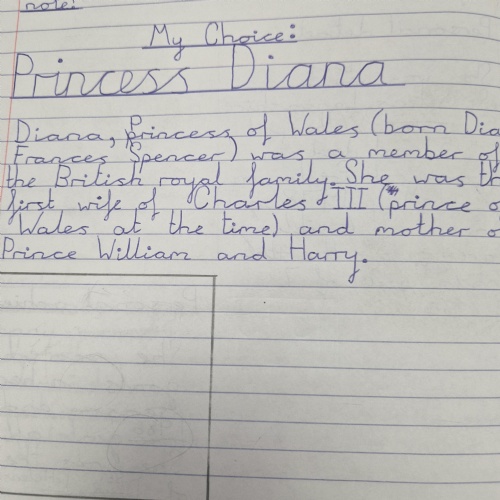 note:
My Choice:
Princess Diana
Diana, Princess of Wales (born Dia
Frances Spencer) was a member of
the British royal family. She was th
first wife of Charles III (prince o
Wales at the time) and mother o
Prince William and Harry.